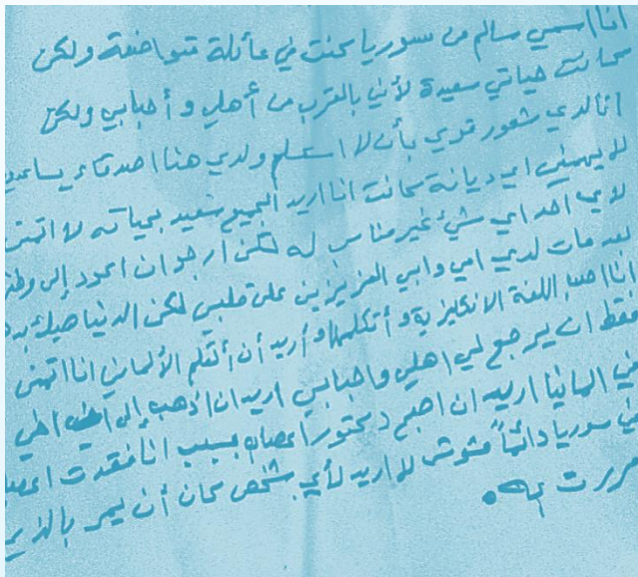 انا اسمي سالم من سوريا كنت في عائلة متواضعة ولكن
كانت حياتي سعيدة لأني بالقرب من أهلي و أحبابي ولكن
انا لدي شعور قوي بأن لا استسلم ولدي هنا اصدقاء
لا يهمني اي ديانة كانت انا اريد الجميع سعيد بحياته لا اتمنى
لاي احد اي شيء غير مناسب له لكن ارجو ان اعود إلى
لقد مات لدي امي وابي العزيزين على قلبي لكن الدنيا هيك
انا احب اللغة الانكليزية و أتكلمها و أريد أن أتكلم الألماني انا اتمنى
فقط ان يرجع لي اهلي واحبابي اريد ان اذهب إلى اخي
في المانيا اريد ان اصبح دكتور اعصاب بسبب انا فقدت
في سوريا دائماً مشوش لا اريد لأي شخص كان أن يمر بالذي
مررت به.